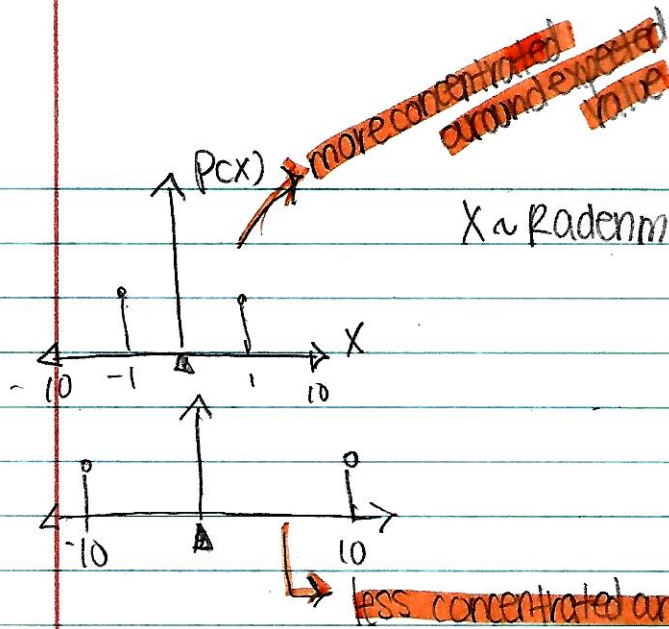 more concentrated
around expected
value
P(x)
X ~ Radenm
X
-10 -1 1 10
-10 10
less concentrated ar